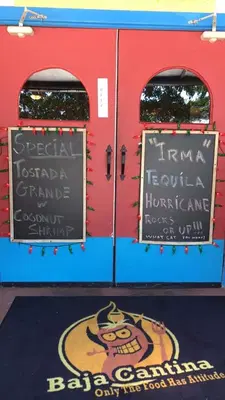 SPECIAL
TOSTADA
GRANDE
W
COCONUT
SHRIMP
"IRMA"
TEQUILA
HURRICANE
ROCKS
OR UP!!!
WHAT CAT
Baja Cantina
Only The Food Has Attitude